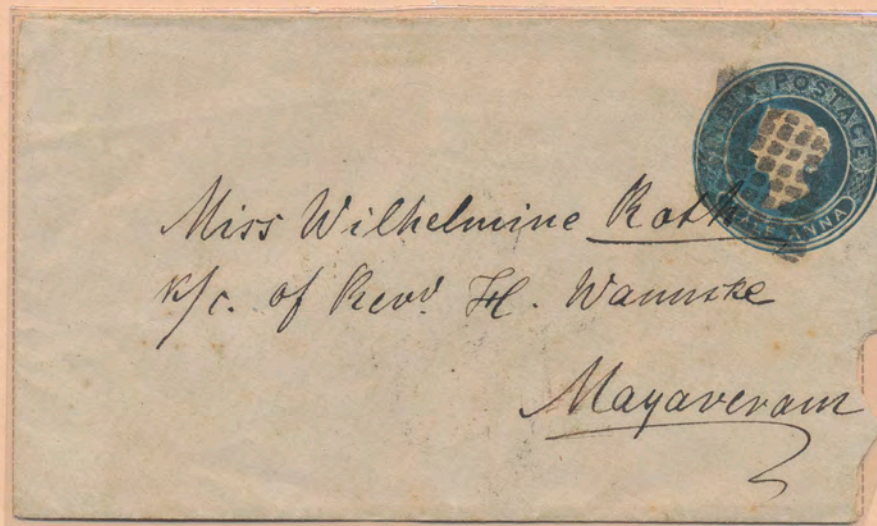 INDIA POSTAGE
HALF ANNA
Miss Wilhelmine Roth
c/o. of Revd. H. Wannske
Mayaveram